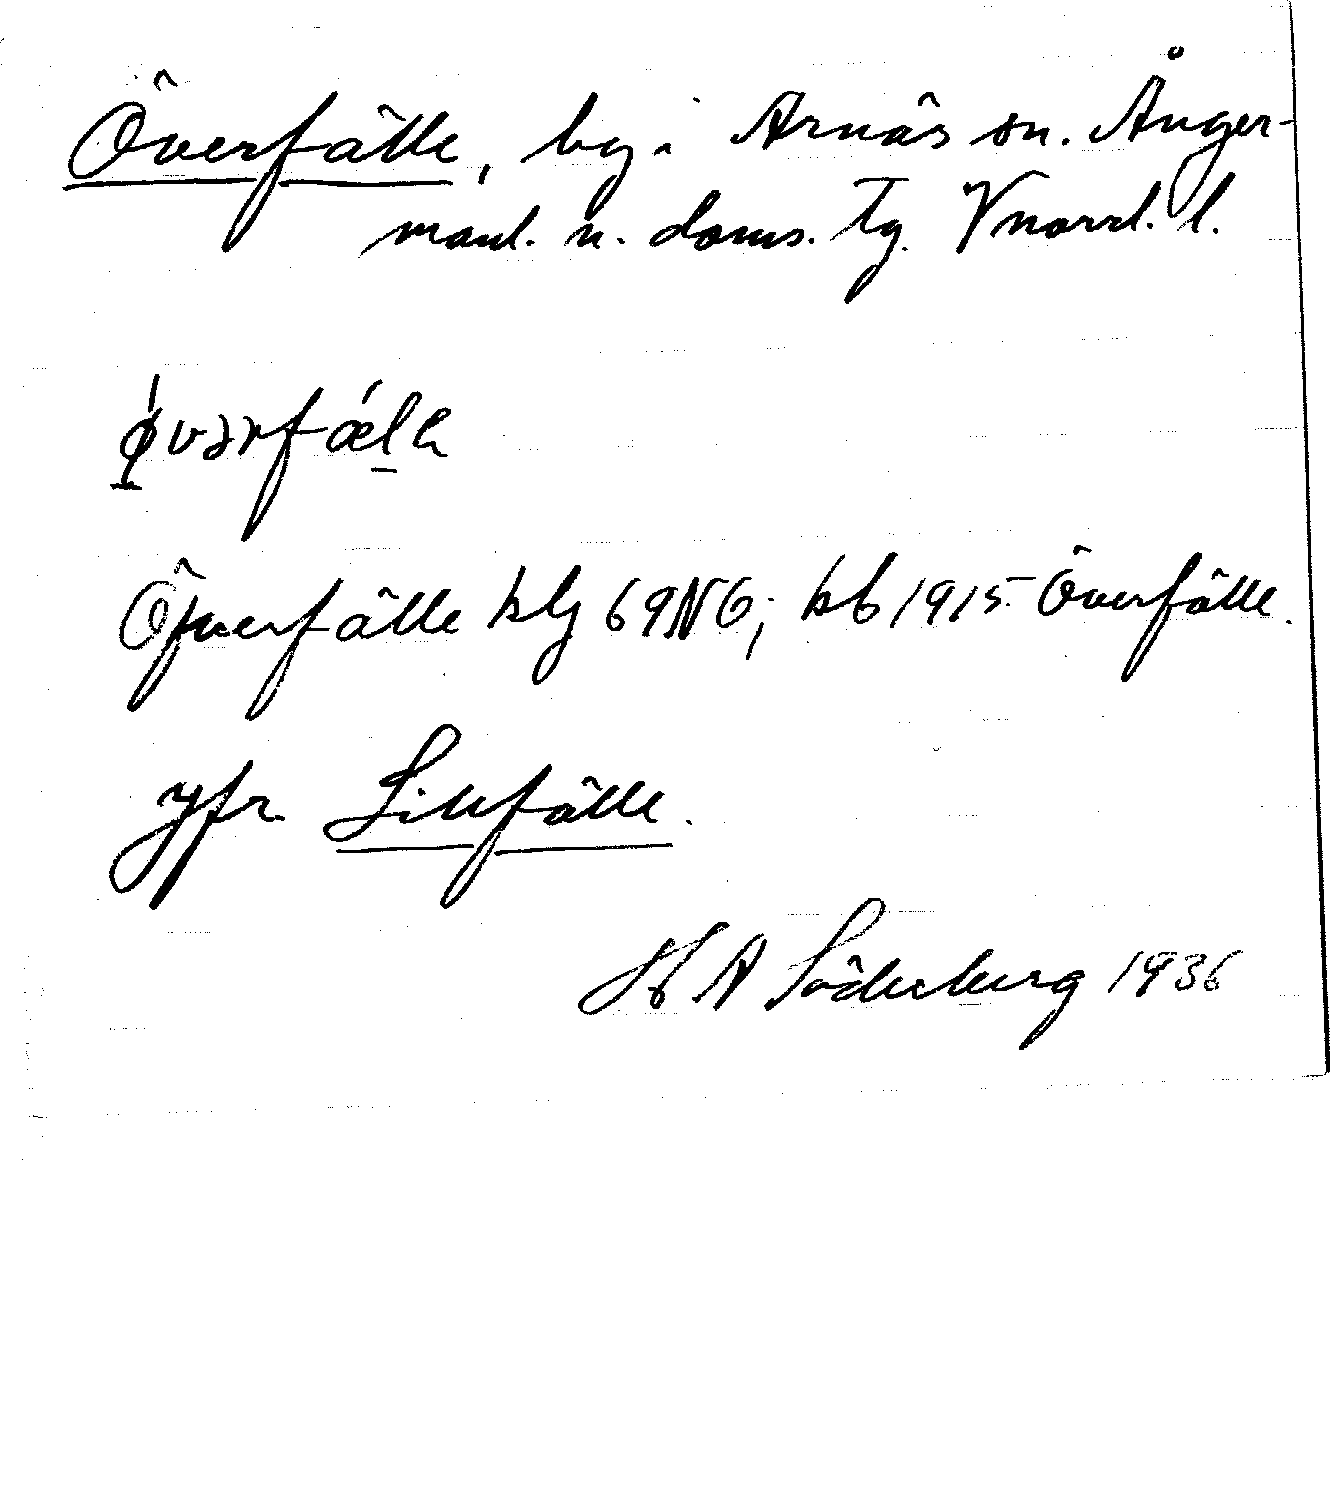 Överfälle, by i Arnäs sn. Ånger-
manl. n. doms. tg. Vnorrl. l.
Öfverfälle klg 69NG; kb 1915 Överfälle.
Jfr Silfälle.
H A Söderberg 1936